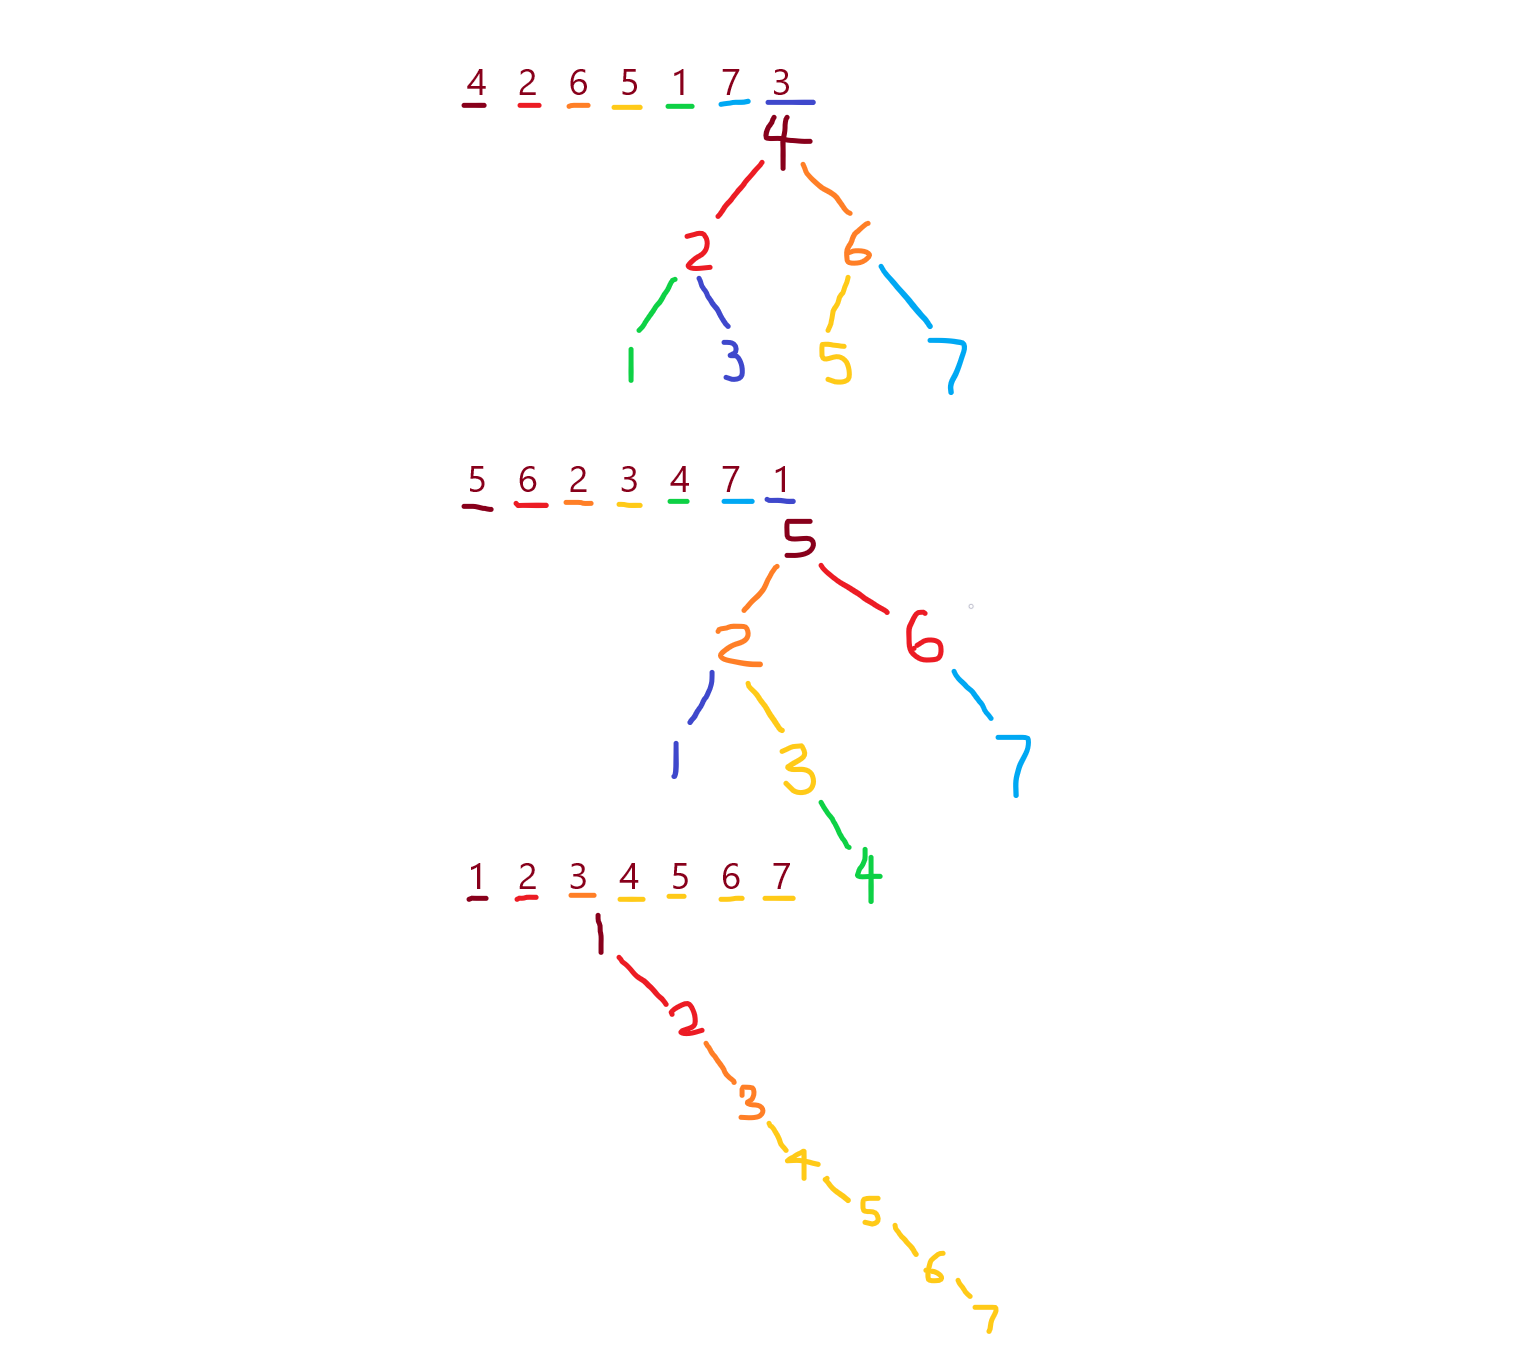 4 2 6 5 1 7 3
4
2 6
1 3 5 7
5 6 2 3 4 7 1
5
2 6
1 3 7
4
1 2 3 4 5 6 7
1
2
3
4
5
6
7